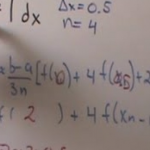 dx Δx = 0.5
n = 4
b-a
3n [f(0) + 4f(0.5) + 2
f( 2 ) + 4f(xn -